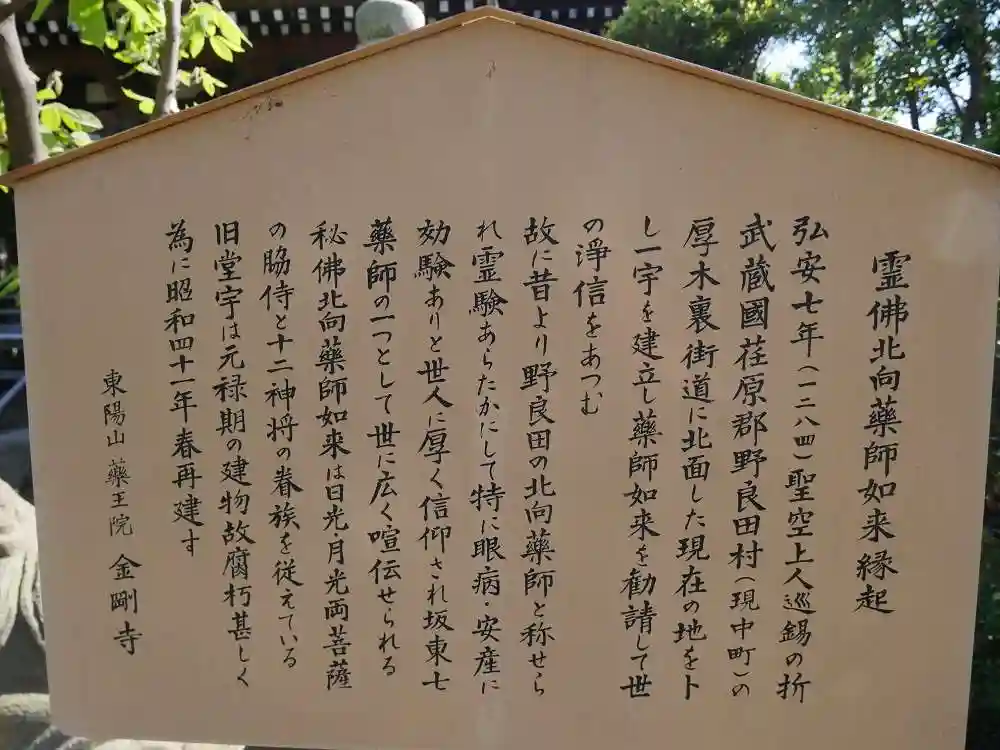 霊佛北向藥師如来縁起
弘安七年（一二八四）聖空上人巡錫の折
武蔵國荏原郡野良田村（現中町）の
厚木裏街道に北面した現在の地をト
し一宇を建立し藥師如来を勧請して世
の淨信をあつむ
故に昔より野良田の北向藥師と称せら
れ霊験あらたかにして特に眼病・安産に
効験ありと世人に厚く信仰され坂東七
藥師の一つとして世に広く喧伝せられる
秘佛北向藥師如来は日光・月光両菩薩
の脇侍と十二神将の眷族を従えている
旧堂宇は元禄期の建物故腐朽甚しく
為に昭和四十一年春再建す
東陽山 藥王院 金剛寺